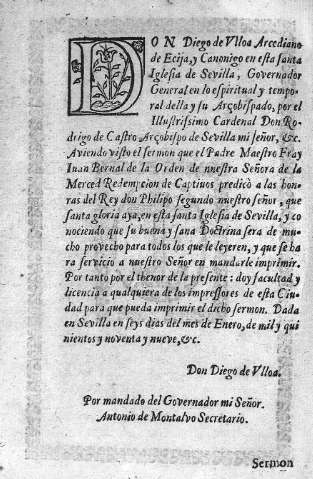 DON Diego de Vlloa Arcediano
de Ecija, y Canonigo en esta santa
Iglesia de Sevilla, Governador
General en lo espiritual y tempo
ral della y su Arçobispado, por el
Illustrissimo Cardenal Don Ro-
drigo de Castro Arçobispo de Sevilla mi señor, &c.
Aviendo visto el sermon que el Padre Maestro Fray
Iuan Bernal de la Orden de nuestra Señora de la
Merced Redempcion de Captivos predicò a las hon-
ras del Rey don Philipo segundo nuestro señor, que
santa gloria aya, en esta santa Iglesia de Sevilla, y co
nociendo que su buena y sana Doctrina sera de mu-
cho provecho para todos los que le leyeren, y que se ha
ra servicio a nuestro Señor en mandarle imprimir.
Por tanto por el thenor de la presente: doy facultad y
licencia a qualquiera de los impressores de esta Ciu-
dad para que pueda imprimir el dicho sermon. Dada
en Sevilla en seys dias del mes de Enero, de mil y qui
nientos y noventa y nueve, &c.
Don Diego de Vlloa.
Por mandado del Governador mi Señor.
Antonio de Montalvo Secretario.
Sermon